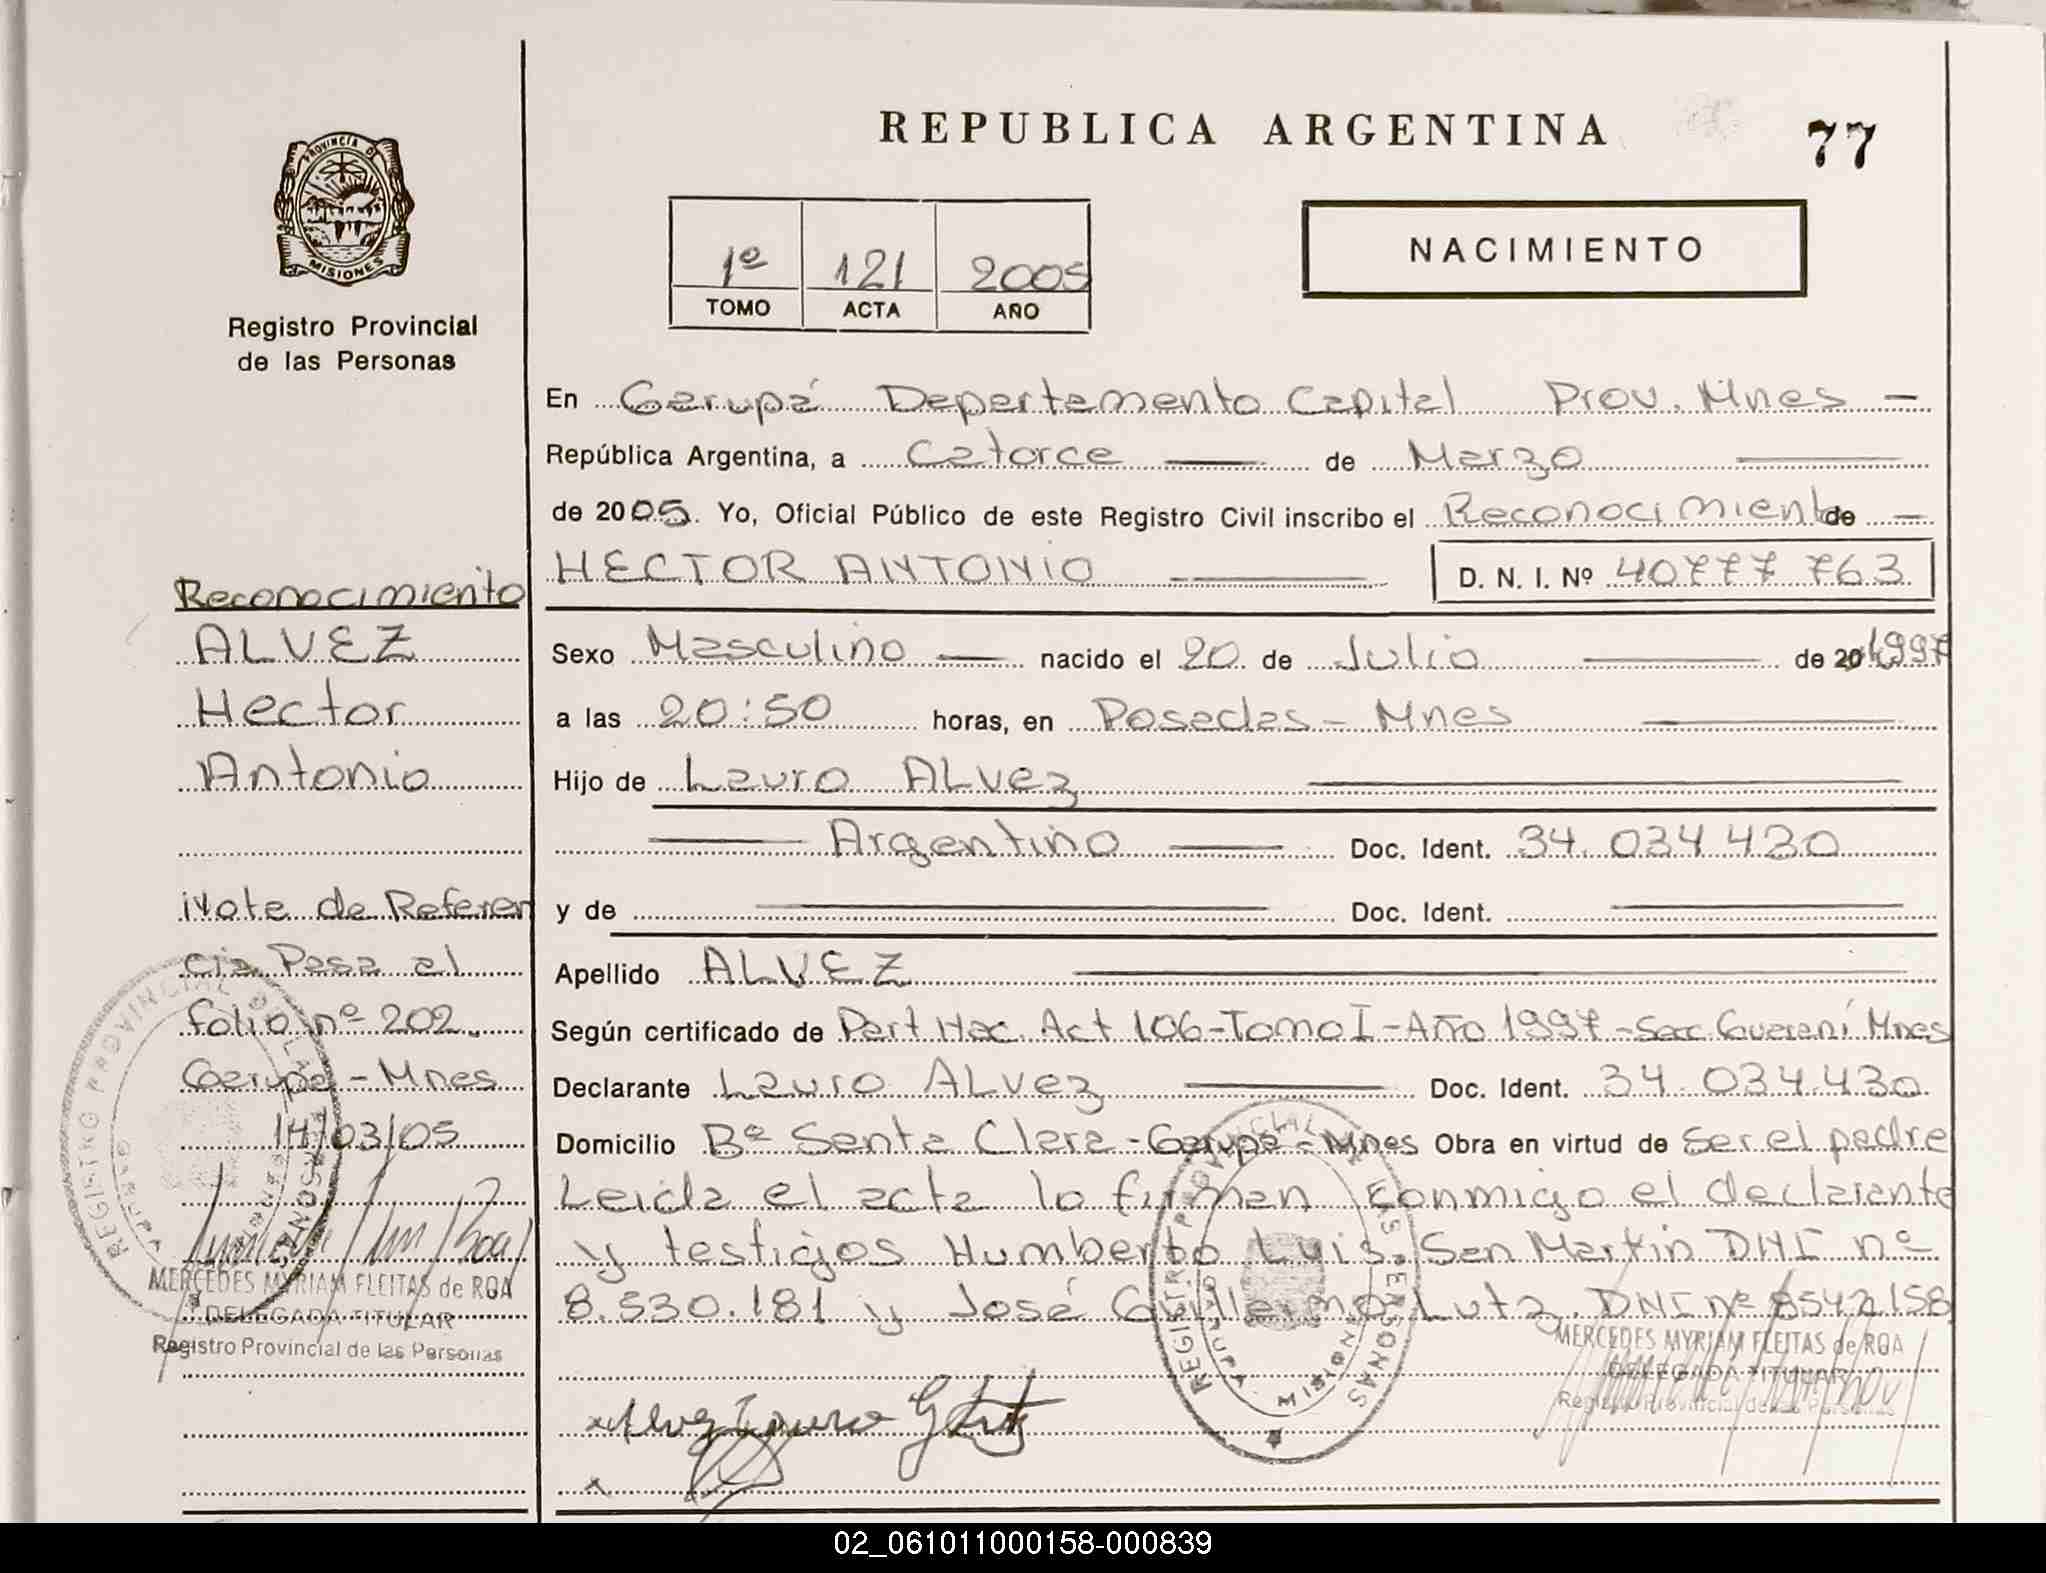 REPUBLICA ARGENTINA
77
PROVINCIA DE
MISIONES
Registro Provincial
de las Personas
1º 121 2005
TOMO ACTA AÑO
NACIMIENTO
En Garupá Departamento Capital Prov. Mnes
República Argentina, a Catorce de Marzo
de 2005. Yo, Oficial Público de este Registro Civil inscribo el Reconocimiento de
HECTOR ANTONIO D. N. I. Nº 40777 763
Sexo Masculino nacido el 20 de Julio de 20 1997
a las 20:50 horas, en Posadas - Mnes
Hijo de Lauro ALVez
Argentino Doc. Ident. 34.034 430
y de Doc. Ident.
Apellido ALVEZ
Según certificado de Part Nac. Act 106 - Tomo I - Año 1997 - Secc. Guaraní Mnes
Declarante Lauro ALVez Doc. Ident. 34.034.430
Domicilio Bº Santa Clara - Garupa - Mnes Obra en virtud de ser el padre
Leida el acta lo firman conmigo el declarante
y testigos Humberto Luis San Martin DNI nº
8.530.181 y José Guillermo Lutz DNI nº 8542158
MERCEDES MYRIAM FLEITAS de ROA
DELEGADA TITULAR
Registro Provincial de las Personas
REGISTRO PROVINCIAL DE LAS PERSONAS
MISIONES
Reconocimiento
ALVEZ
Hector
Antonio
Nota de Referen
cia Pasa al
folio nº 202.
Garupa - Mnes
14/03/05
MERCEDES MYRIAM FLEITAS de ROA
DELEGADA TITULAR
Registro Provincial de las Personas
REGISTRO PROVINCIAL DE LAS PERSONAS
02_061011000158-000839